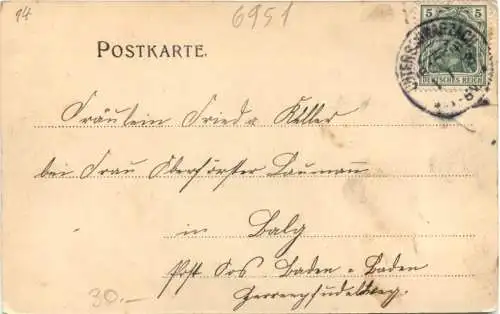 94
6951
POSTKARTE.
5 5
DEUTSCHES REICH
Fräulein Frieda Keller
bei Frau Oberförster Baumann
in Balg
Post Oos Baden-Baden
30.-